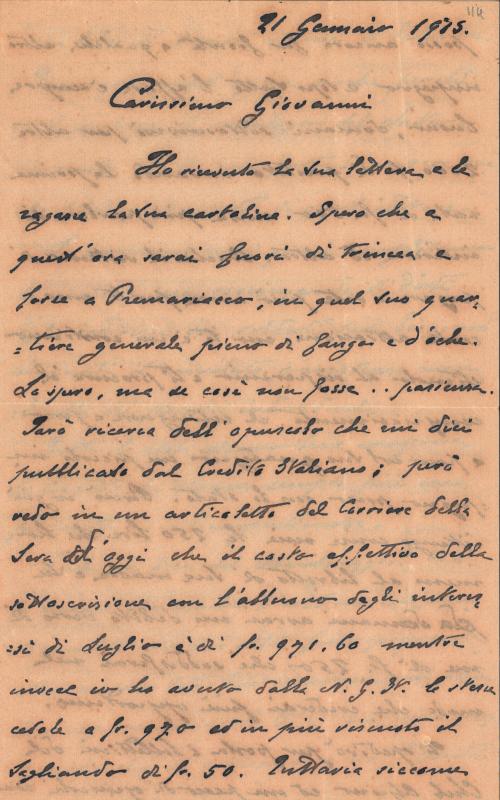 114
21 Gennaio 1915.
Carissimo Giovanni
Ho ricevuto la tua lettera e le
ragazze la tua cartolina. Spero che a
quest'ora sarai fuori di trincea e
forse a Premariacco, in quel tuo quar-
-tiere generale pieno di fango e d'oche.
Lo spero, ma se così non fosse .. pazienza.
Farò ricerca dell'opuscolo che mi dici
pubblicato dal Credito Italiano; però
vedo in un articoletto del Corriere della
Sera d'oggi che il costo effettivo della
sottoscrizione con l'abbuono degli interes-
-si di Luglio è di fr. 971.60 mentre
invece io ho avuto dalla N. G. It. le stesse
cedole a fr. 970 ed in più riscuoto il
tagliando di fr. 50. Tuttavia siccome